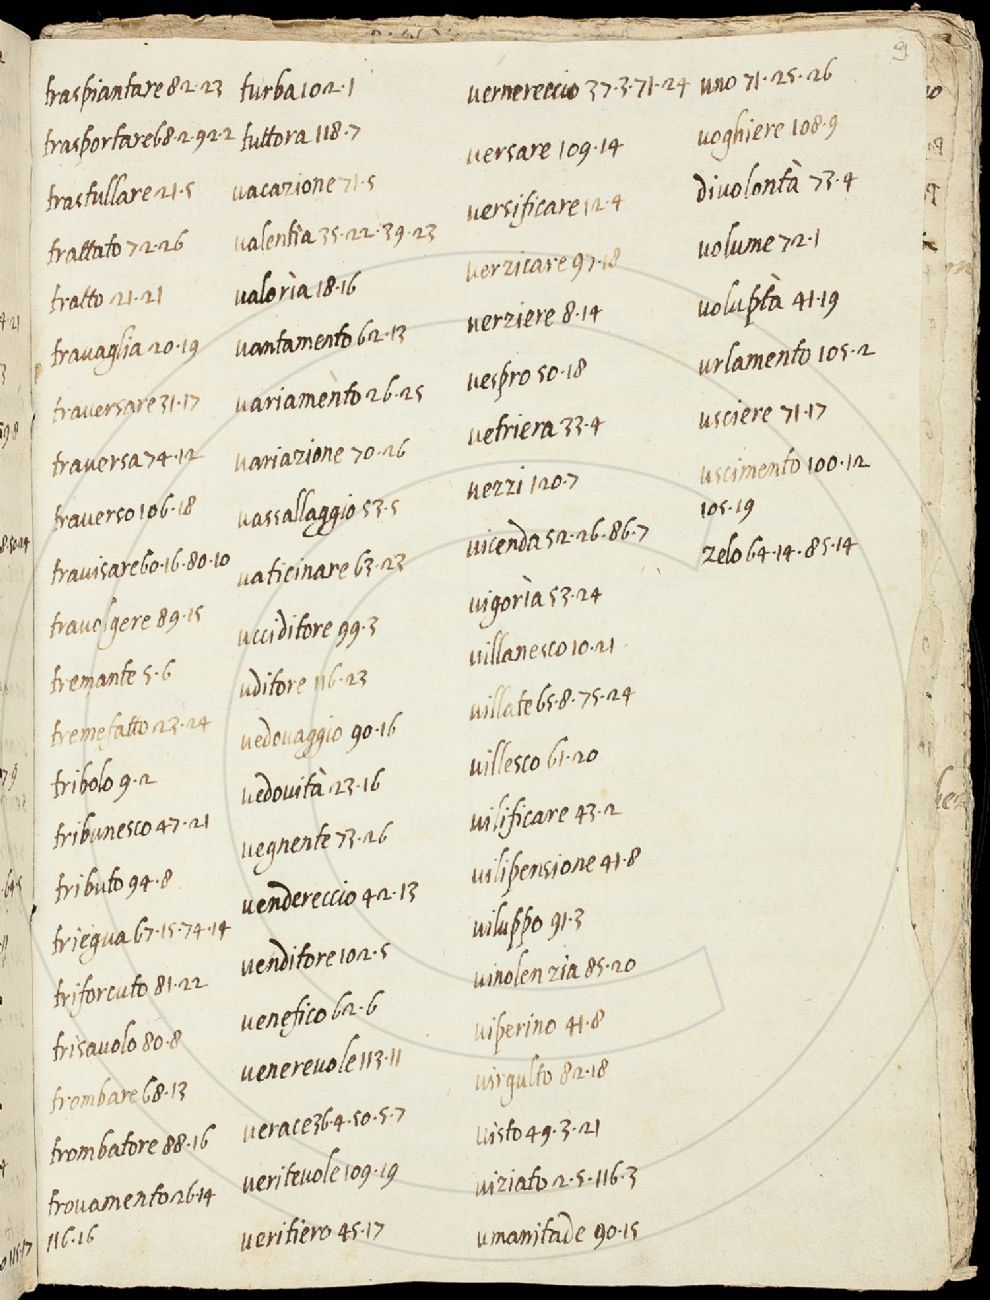 9
traspiantare 82·23
trasportare 68·2·92·2
trastullare 21·5
trattato 72·26
tratto 21·21
travaglia 20·19
traversare 31·17
traversa 74·12
traverso 106·18
travisare 60·16·80·10
travolgere 89·15
tremante 5·6
tremefatto 23·24
tribolo 9·2
tribunesco 47·21
tributo 94·8
triegua 67·15·74·14
triforcuto 81·22
trisauolo 80·8
trombare 68·13
trombatore 88·16
trouamento 26·14
116·16
turba 102·1
tuttora 118·7
vacazione 71·5
valentìa 35·22·39·23
valorìa 18·16
vantamento 62·13
variamento 26·25
variazione 70·26
vassallaggio 53·5
vaticinare 63·23
ucciditore 99·3
uditore 116·23
uedouaggio 90·16
uedouità 23·16
uegnente 73·26
uendereccio 42·13
uenditore 102·5
uenefico 62·6
uenereuole 113·11
uerace 36·4·50·5·7
ueriteuole 109·19
ueritiero 45·17
uernereccio 37·3·71·24
uersare 109·14
uersificare 12·4
uerzicare 97·18
uerziere 8·14
uespro 50·18
uetriera 33·4
uezzi 120·7
uicenda 52·26·86·7
uigorìa 53·24
uillanesco 10·21
uillate 65·8·75·24
uillesco 61·20
uilificare 43·2
uilipensione 41·8
uiluppo 91·3
uinolenzia 85·20
uiperino 41·8
uirgulto 82·18
uisto 49·3·21
uiziato 2·5·116·3
umanitade 90·15
uno 71·25·26
uoghiere 108·9
diuolontà 73·4
uolume 72·1
uoluptà 41·19
urlamento 105·2
usciere 71·17
uscimento 100·12
105·19
zelo 64·14·85·14